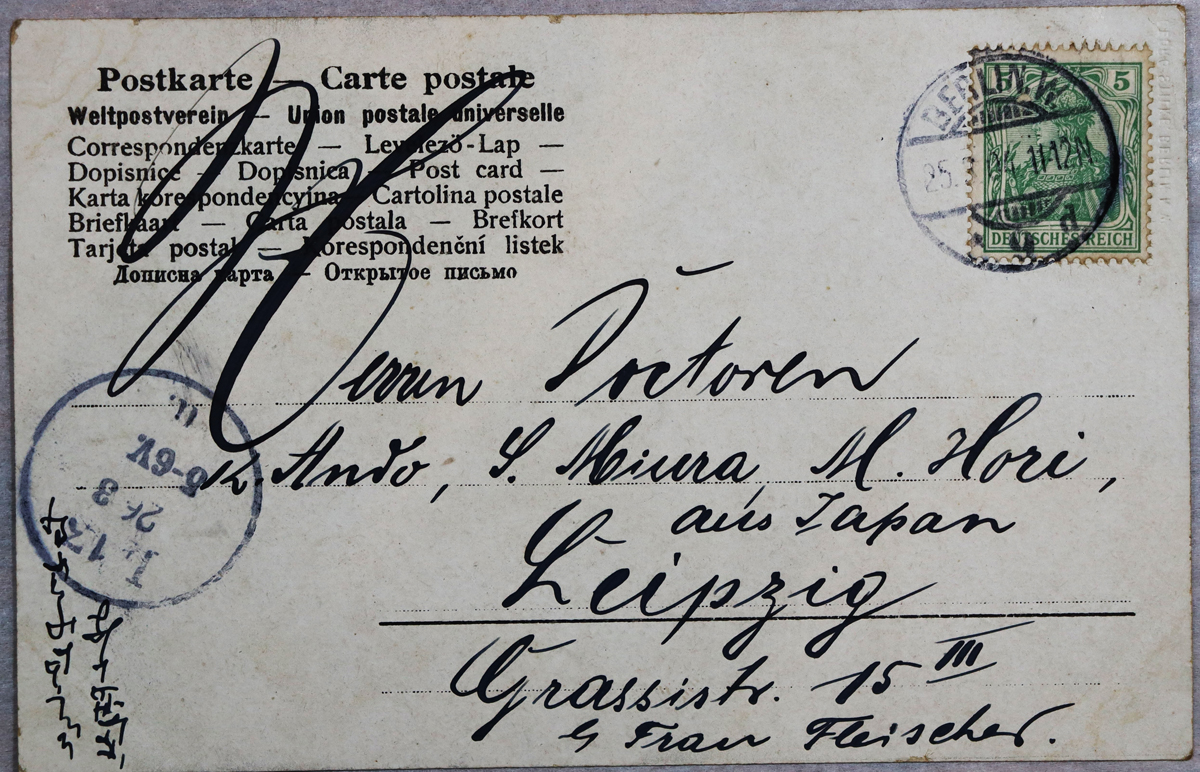 Postkarte — Carte postale
Weltpostverein — Union postale universelle
Correspondenzkarte — Levelező-Lap —
Dopisnice — Dopisnica — Post card —
Karta korespondencyjna — Cartolina postale
Briefkaart — Carta postala — Brefkort
Tarjeta postal — Korespondenční listek
Дописна карта — Открытое письмо
BERLIN. W.
25. 11-12N.
5
DEUTSCHES REICH
Herren Doctoren
K. Ando, S. Miura, M. Hori,
aus Japan
Leipzig
Grassistr. 15 III
Frau Fleischer.
5-6V
26 3
L 13